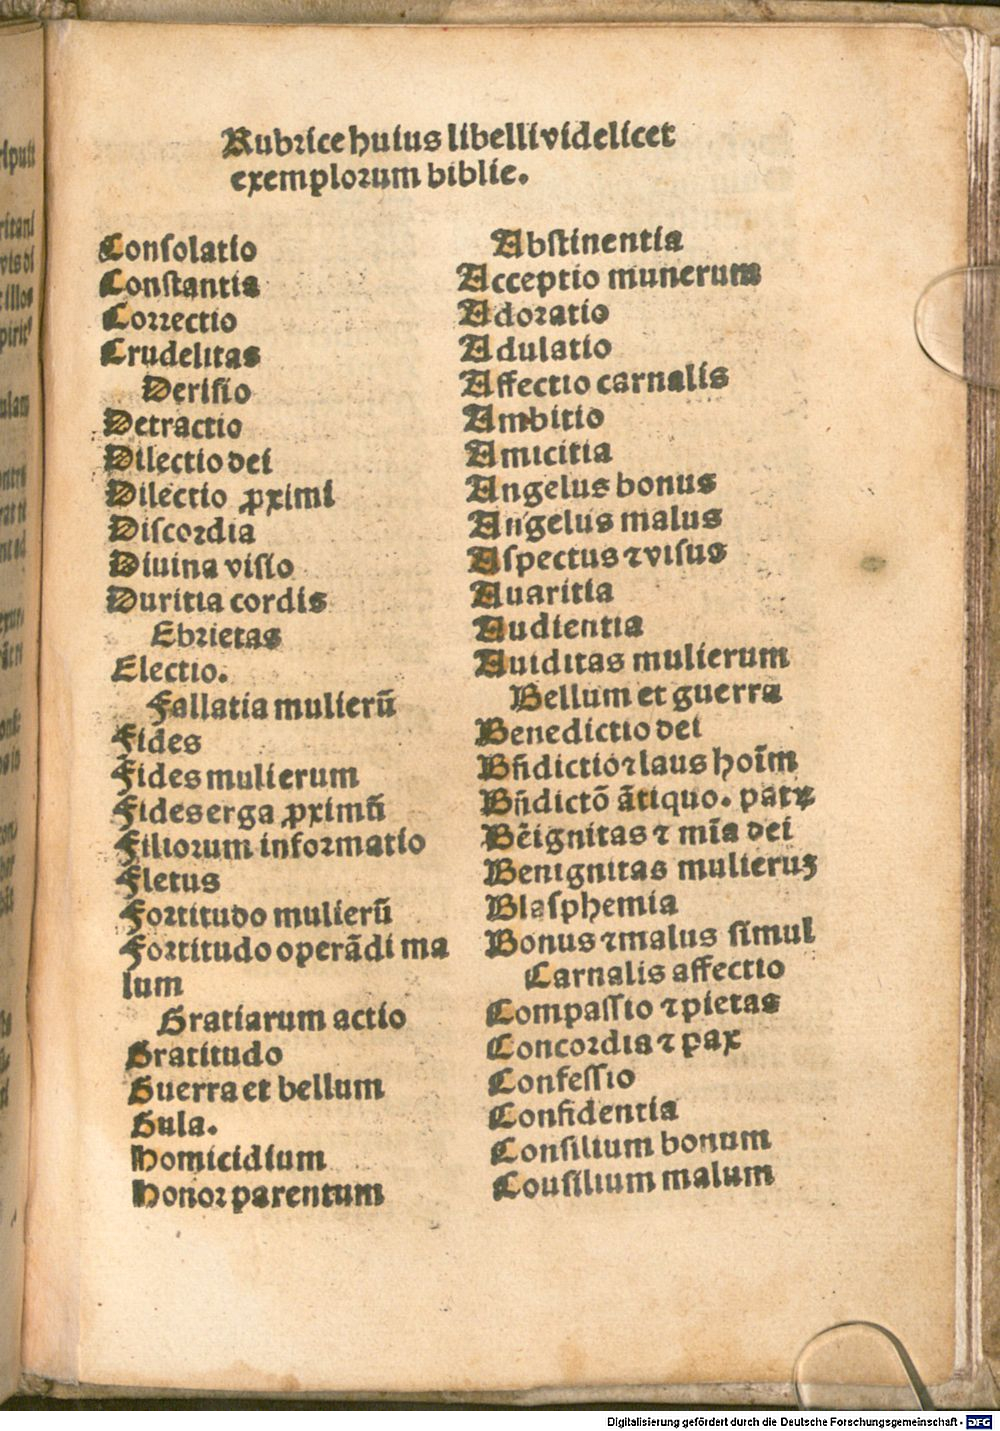 Rubrice huius libelli videlicet
exemplorum biblie.
Conſolatio
Conſtantia
Correctio
Crudelitas
Deriſio
Detractio
Dilectio dei
Dilectio ꝓximi
Diſcordia
Diuina viſio
Duritia cordis
Ebrietas
Electio.
Fallatia mulierū
Fides
Fides mulierum
Fides erga ꝓximū
Filiorum informatio
Fletus
Fortitudo mulierū
Fortitudo operādi ma
lum
Gratiarum actio
Gratitudo
Guerra et bellum
Gula.
Homicidium
Honor parentum
Abſtinentia
Acceptio munerum
Adoratio
Adulatio
Affectio carnalis
Ambitio
Amicitia
Angelus bonus
Angelus malus
Aſpectus ⁊ viſus
Auaritia
Audientia
Auiditas mulierum
Bellum et guerra
Benedictio dei
Bn̄dictio ⁊ laus hoīm
Bn̄dictō ātiquo. patꝝ
Bēignitas ⁊ mīa dei
Benignitas mulieruꝫ
Blaſphemia
Bonus ⁊ malus ſimul
Carnalis affectio
Compaſſio ⁊ pietas
Concordia ⁊ pax
Confeſſio
Confidentia
Conſilium bonum
Couſilium malum
Digitalisierung gefördert durch die Deutsche Forschungsgemeinschaft - DFG